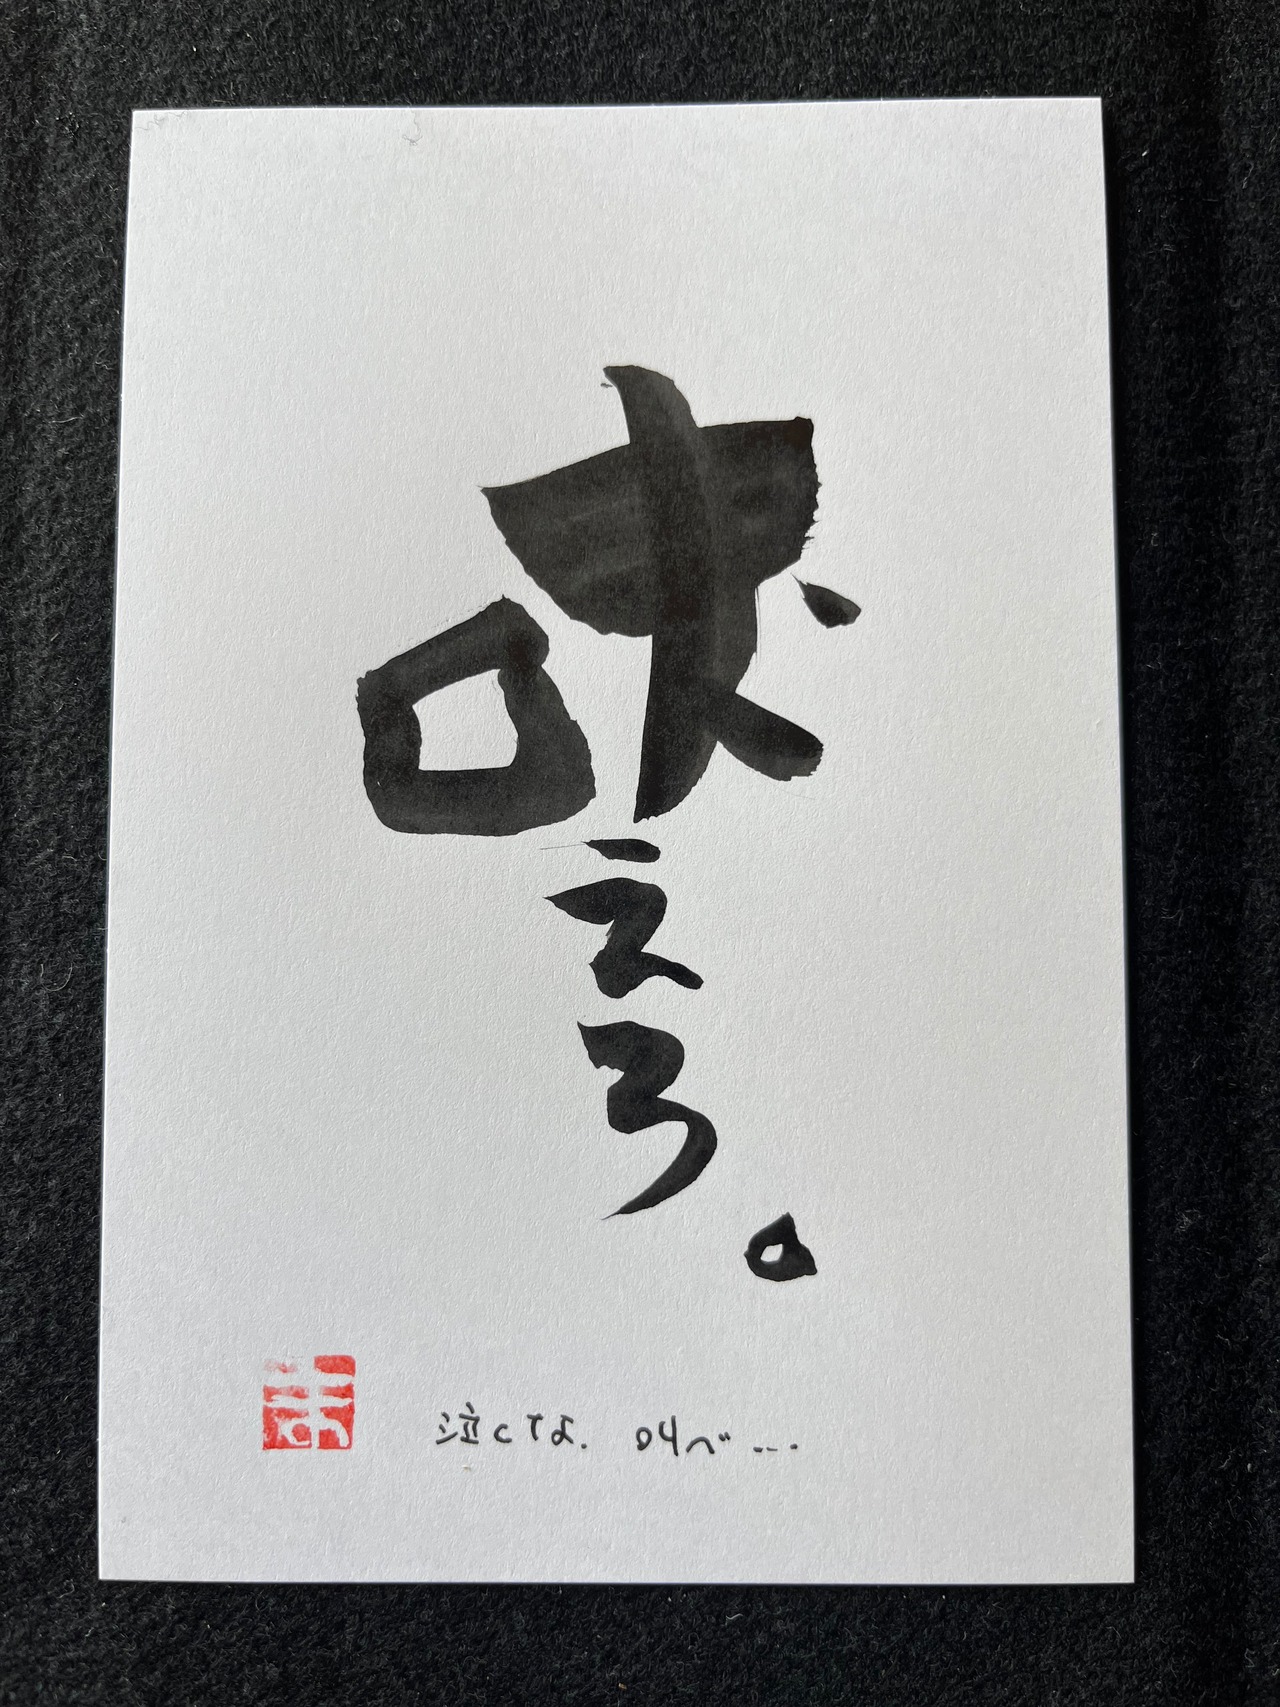 吠えろ。
泣くな. 叫べ….